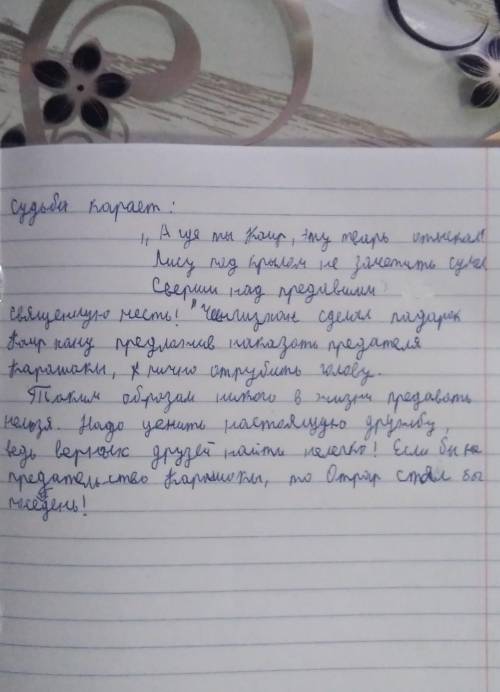 судьбы карает:
„А где ты Каир, эту тварь отыскал
Лису под крылом не заметить сумел
Сверши над предавшим
священную месть!" Чингизхан сделал подарок
Каир хану предложив наказать предателя
Карашокы, и лично отрубить голову.
Таким образом никого в жизни предавать
нельзя. Надо ценить настоящую дружбу,
ведь верных друзей найти нелегко! Если бы не
предательство Карашокы, то Отрар стоял бы
по сей день!